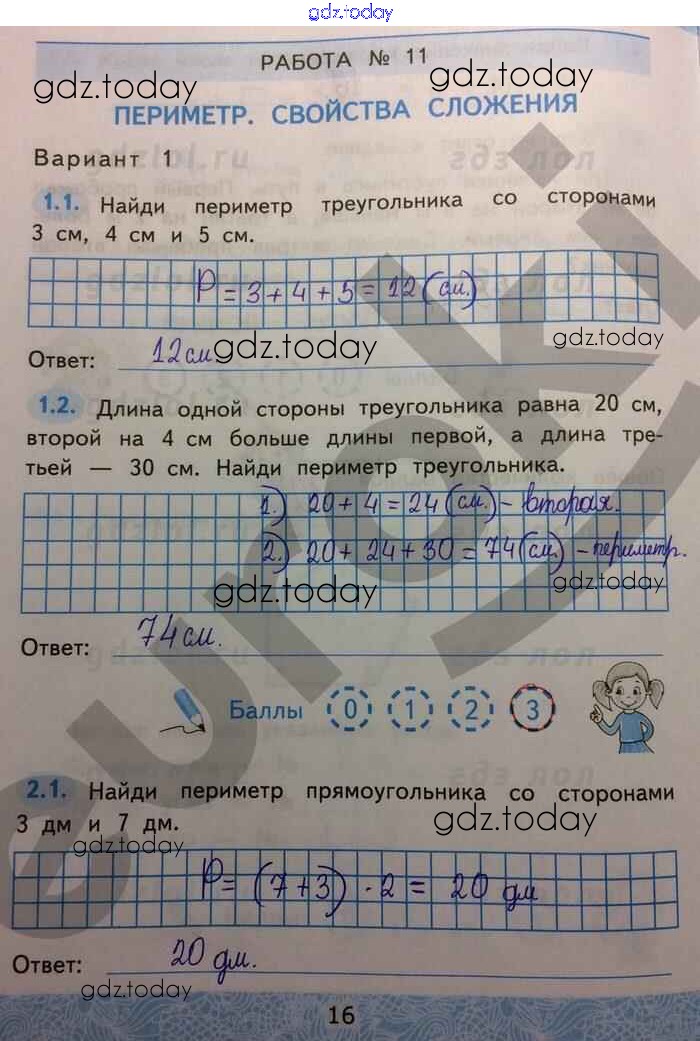 gdz.today
РАБОТА № 11
gdz.today
ПЕРИМЕТР. СВОЙСТВА СЛОЖЕНИЯ
Вариант 1
1.1. Найди периметр треугольника со сторонами
3 см, 4 см и 5 см.
P = 3 + 4 + 5 = 12 (см.)
gdz.today
Ответ: 12 см.
gdz.today
1.2. Длина одной стороны треугольника равна 20 см,
второй на 4 см больше длины первой, а длина тре-
тьей — 30 см. Найди периметр треугольника.
1.) 20 + 4 = 24 (см.) - вторая.
2.) 20 + 24 + 30 = 74 (см.) - периметр.
gdz.today
gdz.today
Ответ: 74 см.
Баллы 0 1 2 3
2.1. Найди периметр прямоугольника со сторонами
3 дм и 7 дм.
gdz.today
gdz.today
P = (7 + 3) · 2 = 20 дм
Ответ: 20 дм.
gdz.today
16
euroki